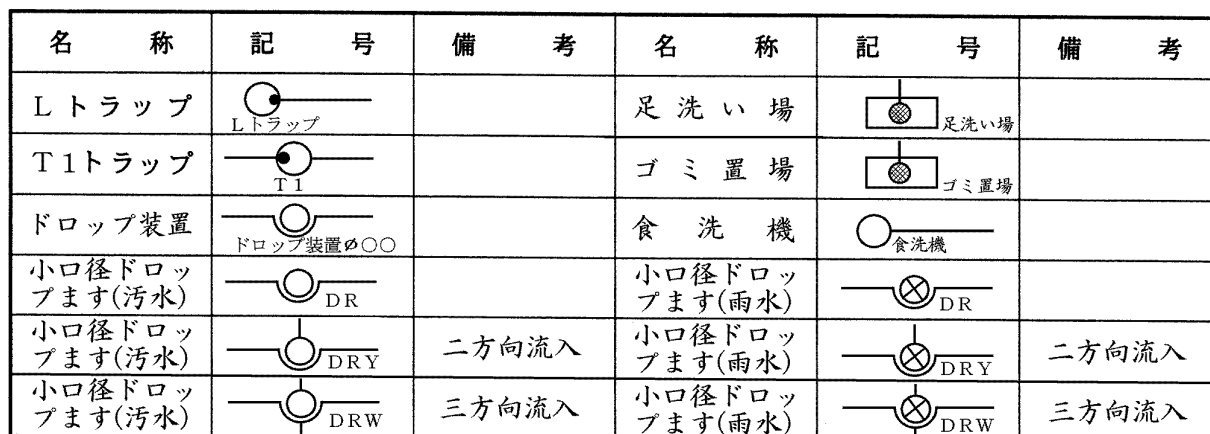 名 称 記 号 備 考 名 称 記 号 備 考
Lトラップ Lトラップ 足洗い場 足洗い場
T1トラップ T1 ゴミ置場 ゴミ置場
ドロップ装置 ドロップ装置φ○○ 食洗機 食洗機
小口径ドロッ
プます(汚水) DR 小口径ドロッ
プます(雨水) DR
小口径ドロッ
プます(汚水) DRY 二方向流入 小口径ドロッ
プます(雨水) DRY 二方向流入
小口径ドロッ
プます(汚水) DRW 三方向流入 小口径ドロッ
プます(雨水) DRW 三方向流入